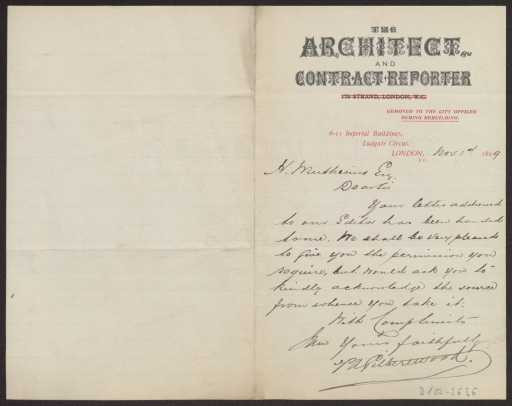 THE
ARCHITECT
AND
CONTRACT REPORTER
175 STRAND, LONDON, W.C.
REMOVED TO THE CITY OFFICES
DURING REBUILDING.
6-11 Imperial Buildings,
Ludgate Circus,
LONDON, Nov 1st 1889
E.C.
H. Esq.
Dear Sir
Your letter addressed
to our Editor has been handed
to me. We shall be very pleased
to give you the permission you
require, but would ask you to
kindly acknowledge the source
from whence you take it.
With Compliments
Yours faithfully
P A Gilbert Wood